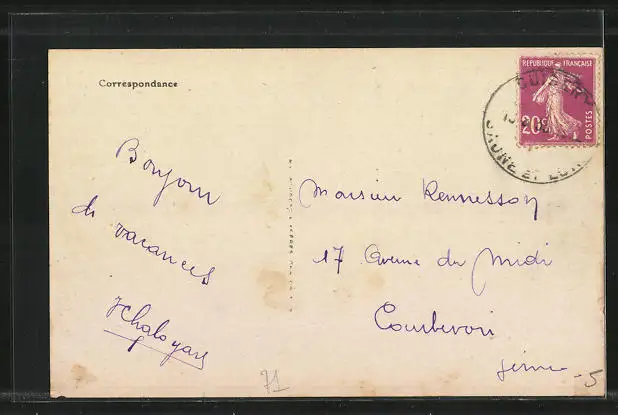 Correspondance
Bonjour
de vacances
REPUBLIQUE FRANÇAISE
20c
POSTES
SAONE ET LOIRE
Monsieur Rennesson
17 Avenue du Midi
Courbevoie
Seine
71
-5